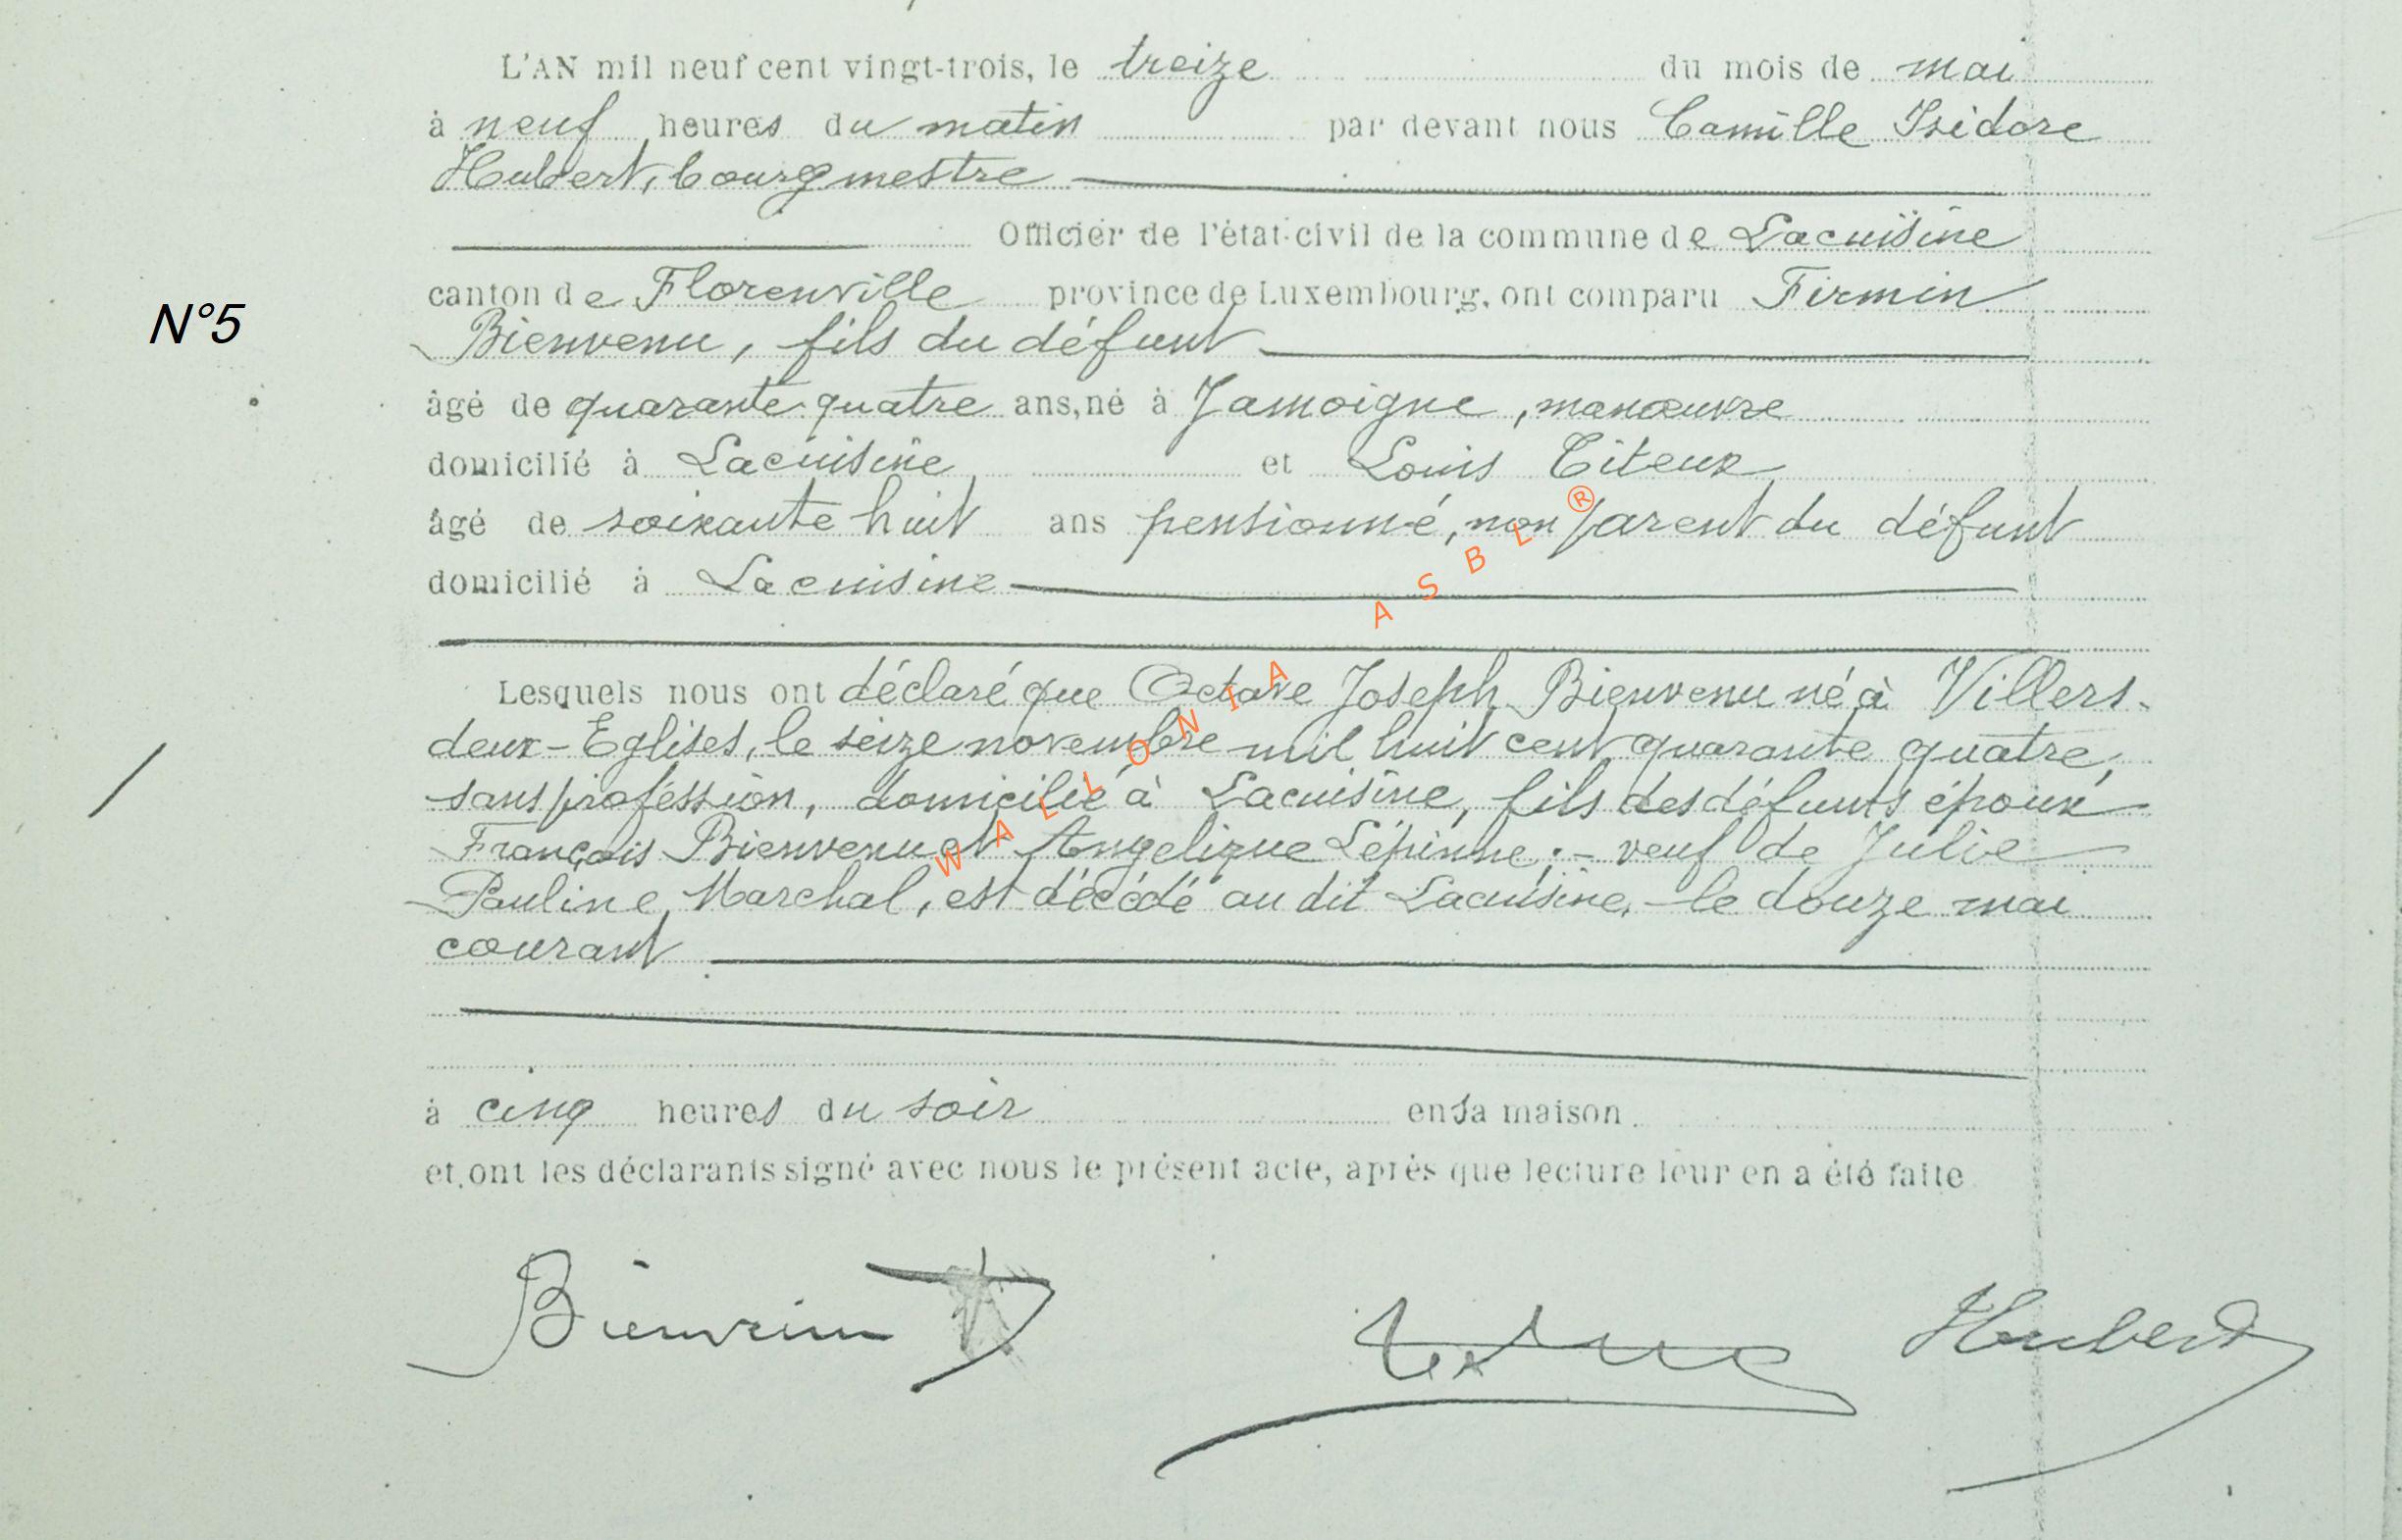 L'AN mil neuf cent vingt-trois, le treize du mois de mai
à neuf heures du matin par devant nous Camille Isidore
Hubert, bourgmestre
Officier de l'état-civil de la commune de Lacuisine
canton de Florenville province de Luxembourg, ont comparu Firmin
N°5
Bienvenu, fils du défunt
âgé de quarante quatre ans, né à Jamoigne, manœuvre
domicilié à Lacuisine et Louis Titeux
âgé de soixante huit ans pensionné, non parent du défunt
domicilié à Lacuisine
Lesquels nous ont déclaré que Octave Joseph Bienvenu né à Villers-
deux-Eglises, le seize novembre mil huit cent quarante quatre,
sans profession, domicilié à Lacuisine, fils des défunts époux
François Bienvenu et Angelique Lépinne; - veuf de Julie
Pauline Marchal, est décédé au dit Lacuisine, le douze mai
courant
à cinq heures du soir en sa maison
et ont les déclarants signé avec nous le présent acte, après que lecture leur en a été faite
Bienvenu Hubert
WALLONIA ASBL ®